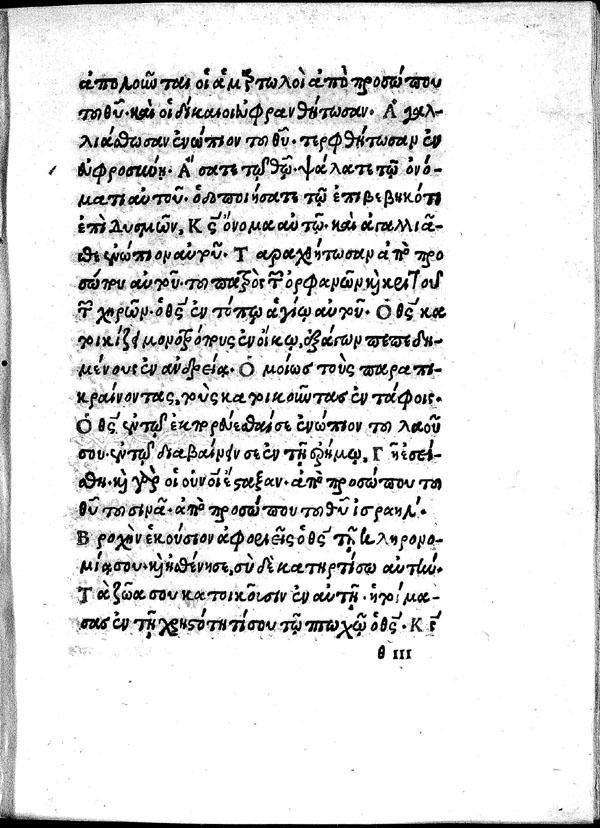 ἀπολοιῶται οἱ ἁμρτωλοὶ ἀπὸ προσώπου
τοῦ θῦ· καὶ οἱ δίκαιοι εὐφρανθήτωσαν· Ἀγαλ
λιάσθωσαν ἐνώπιον τοῦ θῦ· τερφθήτωσαν ἐν
εὐφροσύνῃ· Ἄσατε τῷ θῷ· ψάλατε τῷ ὀνό-
ματι αὐτοῦ· ὁδοποιήσατε τῷ ἐπιβεβηκότι
ἐπὶ δυσμῶν, Κς ὄνομα αὐτῷ· καὶ ἀγαλλιᾶ-
θε ἐνώπιον αὐτοῦ· Ταραχθήτωσαν ἀπὸ προ
σώπου αὐτοῦ· τοῦ πατρὸς τῶν ὀρφανῶν κὶ κριτοῦ
τῶν χηρῶν· ὁ θς ἐν τόπῳ ἁγίῳ αὐτοῦ· Ὁ θς κα
τοικίζει μονοτρόπους ἐν οἴκῳ, ἐξάγων πεπεδη-
μένους ἐν ἀνδρεία· Ὁμοίως τοὺς παραπι-
κραίνοντας, τοὺς κατοικοῦντας ἐν τάφοις·
Ὁ θς ἐν τῷ ἐκπορεύεσθαί σε ἐνώπιον τοῦ λαοῦ
σου· ἐν τῷ διαβαίνειν σε ἐν τῇ ἐρήμῳ, Γῆ ἐσεί-
σθη· κὶ γὰρ οἱ οὐνοὶ ἔσταξαν· ἀπὸ προσώπου τοῦ
θῦ τοῦ σινᾶ· ἀπὸ προσώπου τοῦ θῦ ἰσραήλ·
Βροχὴν ἑκούσιον ἀφοριεῖς ὁ θς τῇ κληρονο-
μίᾳ σου· κὶ ἠσθένησε, σὺ δὲ κατηρτίσω αὐτήν·
Τὰ ζῶα σου κατοικοῦσιν ἐν αὐτῇ· ἡτοίμα-
σας ἐν τῇ χρηστότητί σου τῷ πτωχῷ ὁ θς· Κς
θ III